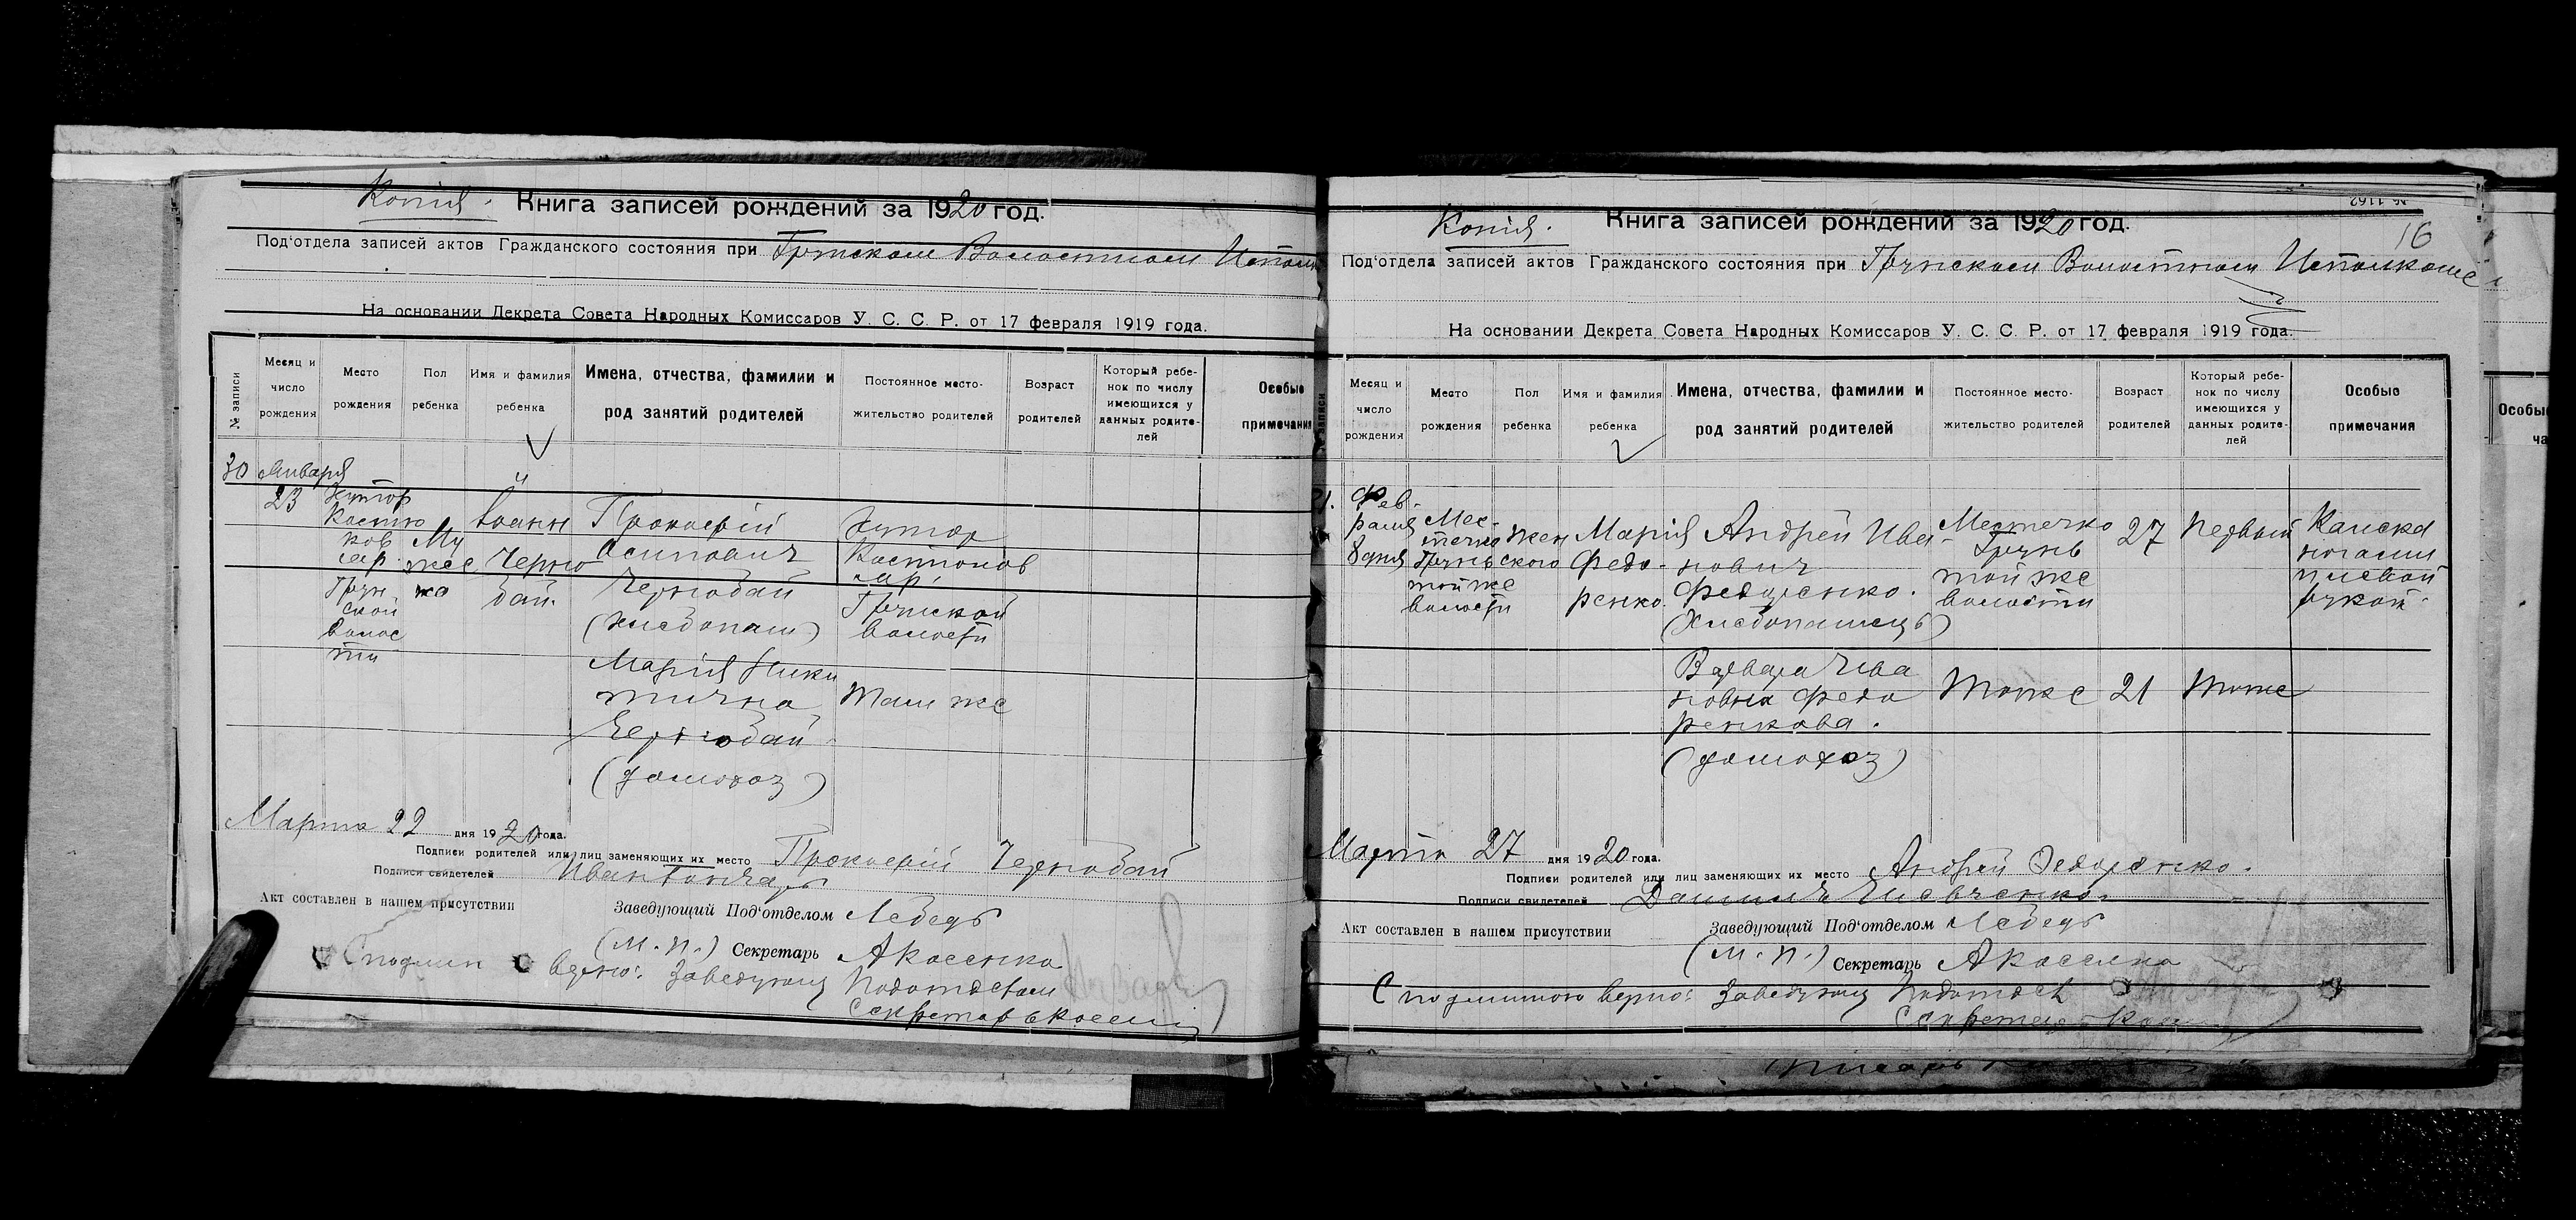 Копія. Книга записей рождений за 1920 год.
Под'отдела записей актов Гражданского состояния при Грунском Волостном Исполк
На основании Декрета Совета Народных Комиссаров У. С. С. Р. от 17 февраля 1919 года.
№ записи
Месяц и число рождения
Место рождения
Пол ребенка
Имя и фамилия ребенка
Имена, отчества, фамилии и род занятий родителей
Постоянное место-жительство родителей
Возраст родителей
Который ребе-нок по числу имеющихся у данных родите-лей
Особые примечания
30 Января
23
Хутор
Костю
ков
Грун
ской
волос
ти
Му
жес
ка
Іоанн
Черно
бай.
Прокофій
Осипович
Чернобай
(хлебопаш)
Хутор
Костюков
Грунской
волости
Марія Ники
тична
Чернобай
(домохоз)
Там же
Марта 22 дня 1920 года.
Подписи родителей или лиц заменяющих их место Прокофій Чернобай
Подписи свидетелей Иван Гончарь
Акт составлен в нашем присутствии Заведующий Под'отделом Лебедь
(М. П.) Секретарь
С подлин верно: Заведующ Подотделом
Секретарь
№ 1162
16
Копія. Книга записей рождений за 1920 год.
Под'отдела записей актов Гражданского состояния при Грунском Волостном Исполкоме
На основании Декрета Совета Народных Комиссаров У. С. С. Р. от 17 февраля 1919 года.
записи
Месяц и число рождения
Место рождения
Пол ребенка
Имя и фамилия ребенка
Имена, отчества, фамилии и род занятий родителей
Постоянное место-жительство родителей
Возраст родителей
Который ребе-нок по числу имеющихся у данных родите-лей
Особые примечания
Фев-
раля
8 дня
Мес-
течко
Грунь
той же
волости
жен
ского
Марія
Федо-
ренко.
Андрей Ива-
нович
Федоренко.
(Хлебопашець)
Местечко
Грунь
той же
волости
27
первый
Варвара Ива
новна Федо
ренкова.
(домохоз)
Тоже
21
тоже
Марта 27 дня 1920 года.
Подписи родителей или лиц заменяющих их место Андрей Федоренко.
Подписи свидетелей
Акт составлен в нашем присутствии Заведующий Под'отделом Лебедь
(М. П.) Секретарь
С подлинною верно: Заведующ Подотдел
Особы